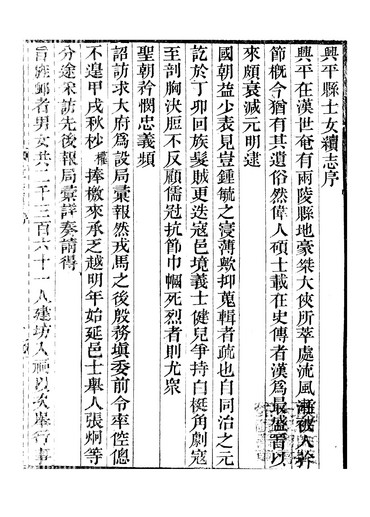 興平縣士女續志序
興平在漢世奄有兩陵縣地豪桀大俠所萃處流風漸被人幹
節槪今猶有其遺俗然偉人碩士載在史傳者漢爲最盛晉以
來頗衰減元明逮
國朝益少表見豈鍾毓之寖薄歟抑蒐輯者疏也自同治之元
訖於丁卯回族髮賊更迭寇邑境義士健兒爭持白梃角劇寇
至剖胸決脰不反顧儒冠抗節巾幗死烈者則尤衆
聖朝矜憫忠義頻
詔訪求大府爲設局彙報然戎馬之後殷務塡委前令率倥傯
不遑甲戌秋杪權捧檄來承乏越明年始延邑士舉人張炯等
分途采訪先後報局彙詳奏請得
旨旌卹者男女共二千三百六十一人建坊入祠以次舉行事